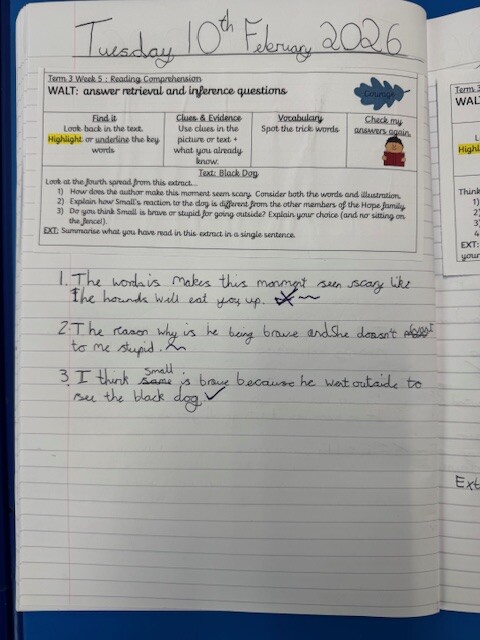 Tuesday 10th February 2026
Term 3 Week 5 : Reading Comprehension
WALT: answer retrieval and inference questions
Courage
Find it
Look back in the text.
Highlight or underline the key
words
Clues & Evidence
Use clues in the
picture or text +
what you already
know.
Vocabulary
Spot the trick words
Check my
answers again.
Text: Black Dog
Look at the fourth spread from this extract...
1) How does the author make this moment seem scary. Consider both the words and illustration.
2) Explain how Small's reaction to the dog is different from the other members of the Hope family
3) Do you think Small is brave or stupid for going outside? Explain your choice (and no sitting on
the fence!).
EXT: Summarise what you have read in this extract in a single sentence.
1. The words is makes this moment seen scary like
the hounds will eat you up.
2. The reason why is he being brave and She doesn't
to me stupid.
Small
3. I think same is brave because he went outside to
see the black dog.
Term 3
WAL
L
Highl
Think
1)
2)
3)
4.
EXT:
your
Ext